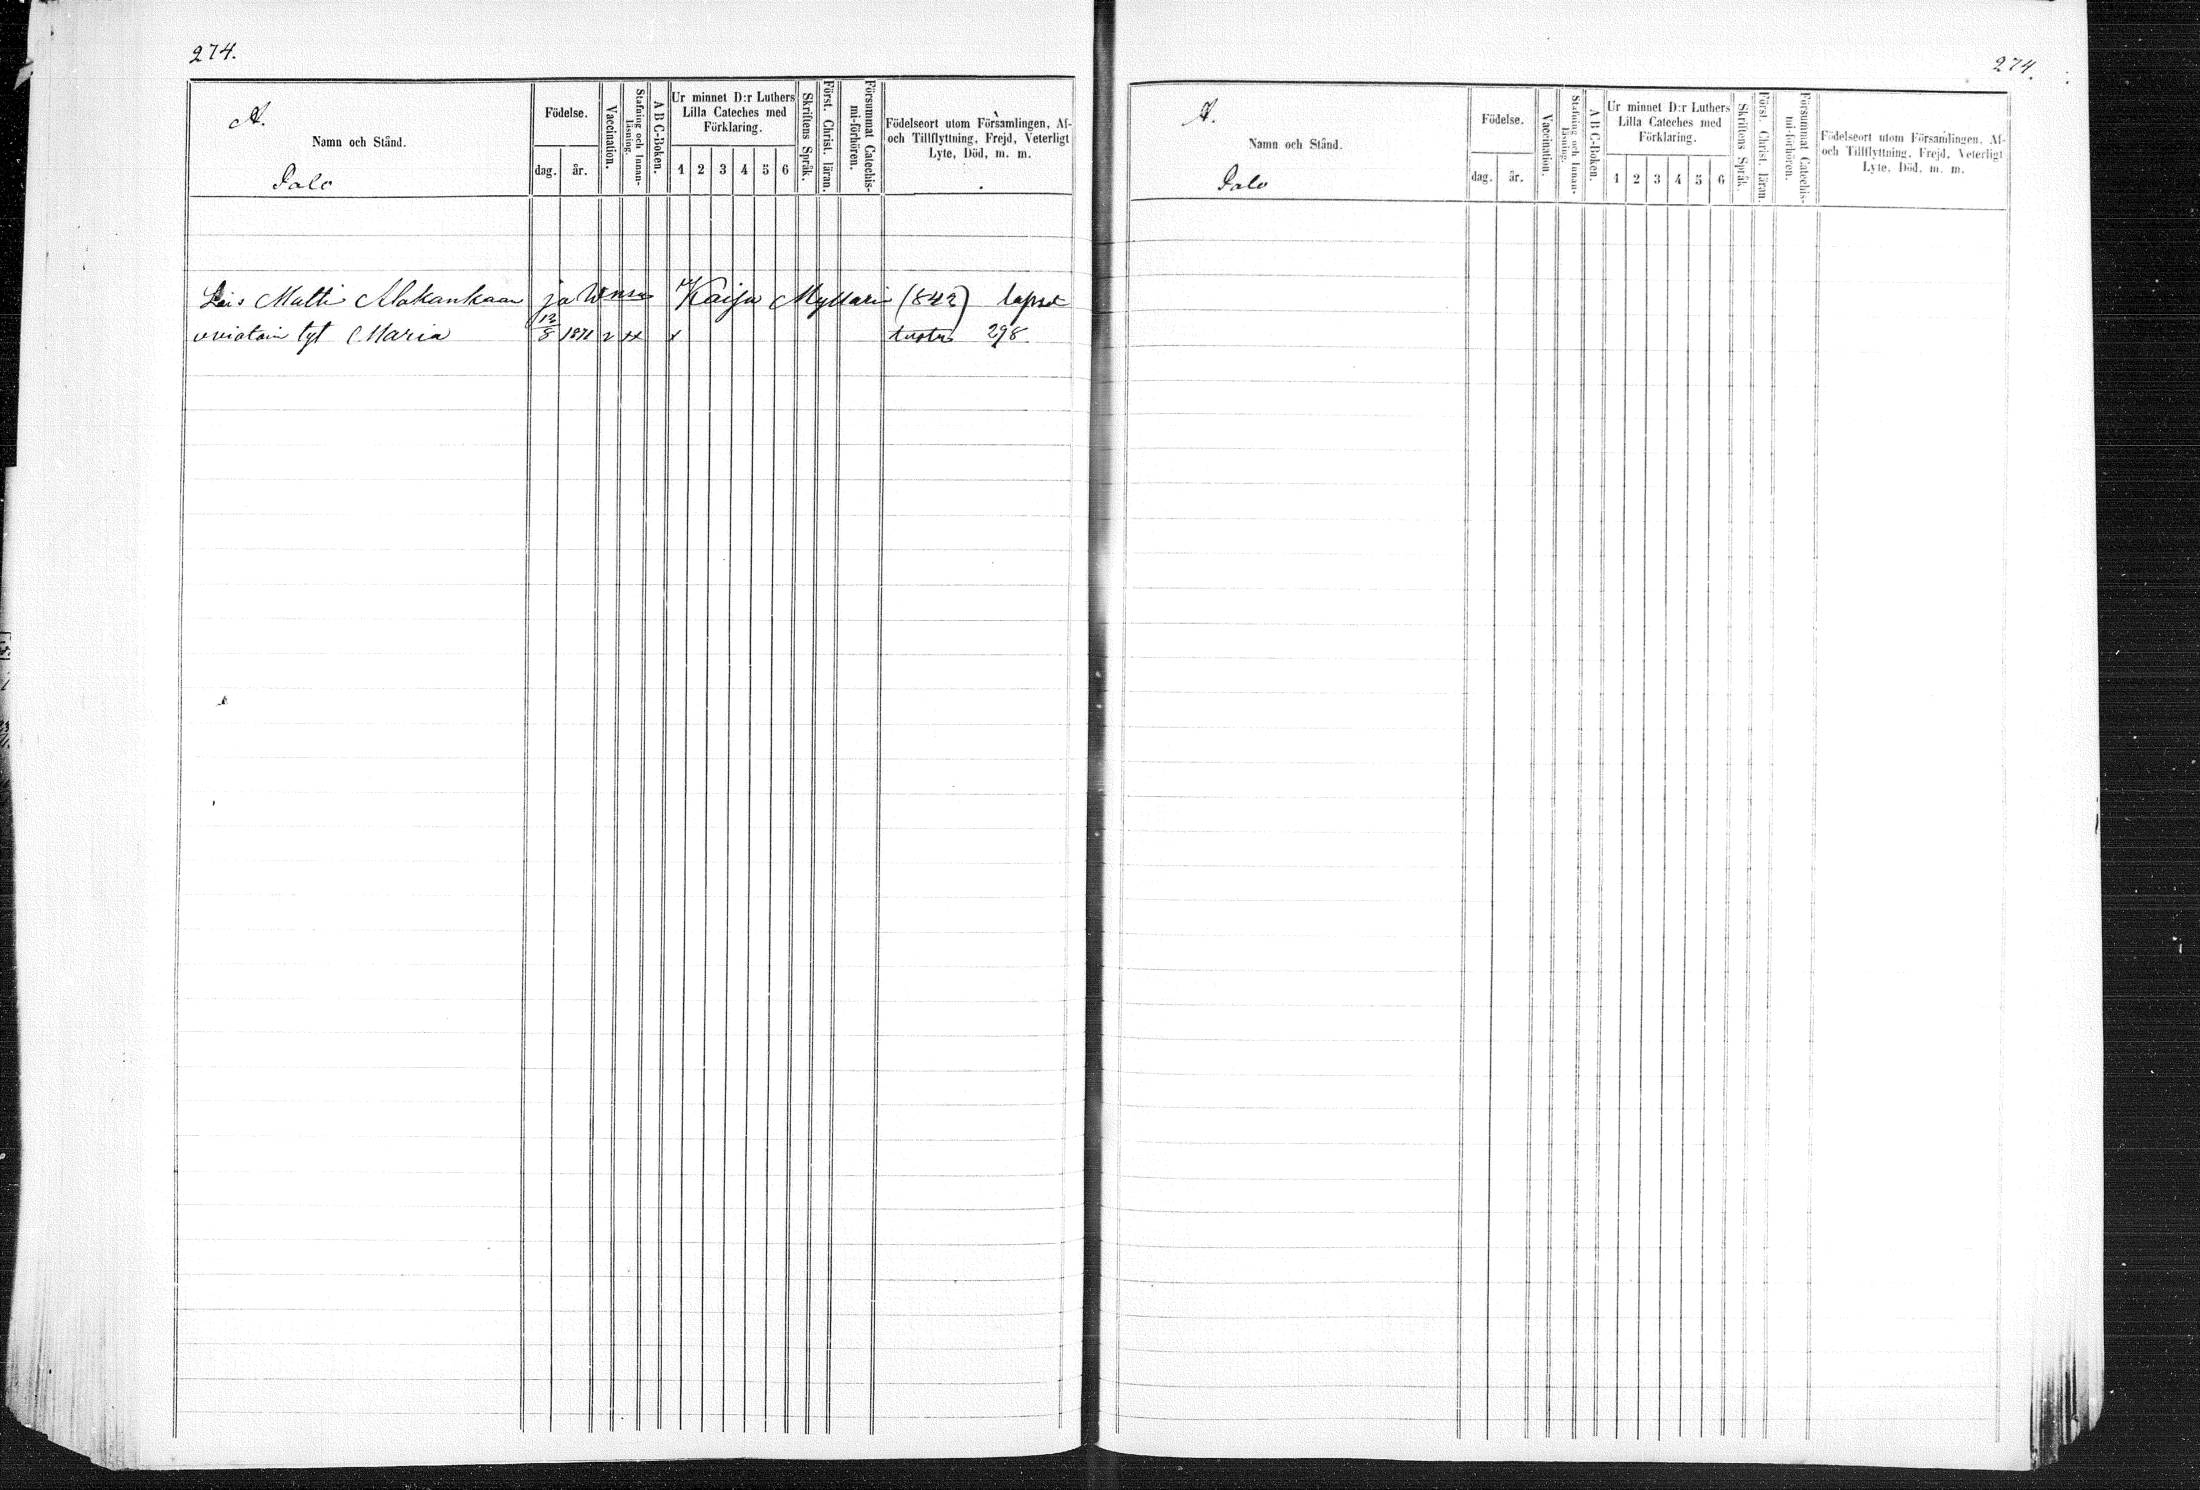 274.
A.
Namn och Stånd.
Palo
Födelse.
dag.
år.
Vaccination.
Stafning och Innan-
läsning.
A B C-Boken.
Ur minnet D:r Luthers
Lilla Cateches med
Förklaring.
1 2 3 4 5 6
Skriftens Språk.
Först. Christ. läran.
Försummat Catechis-
mi-förhören.
Födelseort utom Församlingen, Af-
och Tillflyttning, Frejd, Veterligt
Lyte, Död, m. m.
Matti Alakankaan ja Kaija Mylläri (842) lapset
tyt Maria 12/8 1871 v x 298
274.
A.
Namn och Stånd.
Palo
Födelse.
dag.
år.
Vaccination.
Stafning och Innan-
läsning.
A B C-Boken.
Ur minnet D:r Luthers
Lilla Cateches med
Förklaring.
1 2 3 4 5 6
Skriftens Språk.
Först. Christ. läran.
Försummat Catechis-
mi-förhören.
Födelseort utom Församlingen, Af-
och Tillflyttning, Frejd, Veterligt
Lyte, Död, m. m.